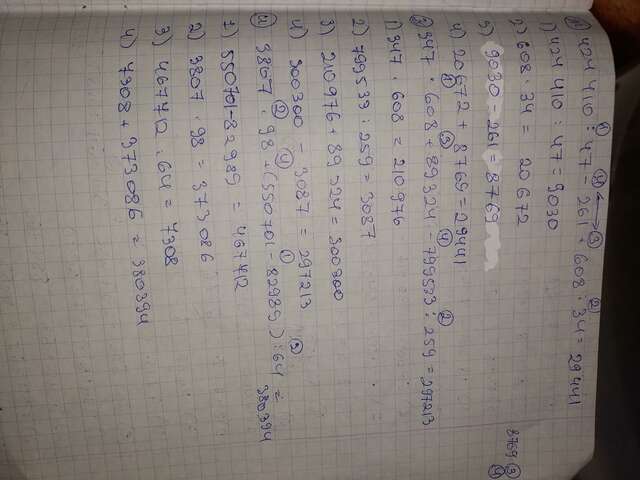 ① ④ ⟷ ③ ②
424 410 : 47 - 261 + 608 · 34 = 29441
1) 424 410 : 47 = 9030
2) 608 · 34 = 20672
3) 9030 - 261 = 8769
4) 20672 + 8769 = 29441
① ③ ④ ②
347 · 608 + 89324 - 799533 : 259 = 297213
1) 347 · 608 = 210976
2) 799533 : 259 = 3087
3) 210976 + 89324 = 300300
4) 300300 - 3087 = 297213
② ④ ① ③
3807 · 98 + (550701 - 82989) : 64 = 380394
1) 550701 - 82989 = 467712
2) 3807 · 98 = 373086
3) 467712 : 64 = 7308
4) 7308 + 373086 = 380394
8769 ③
④